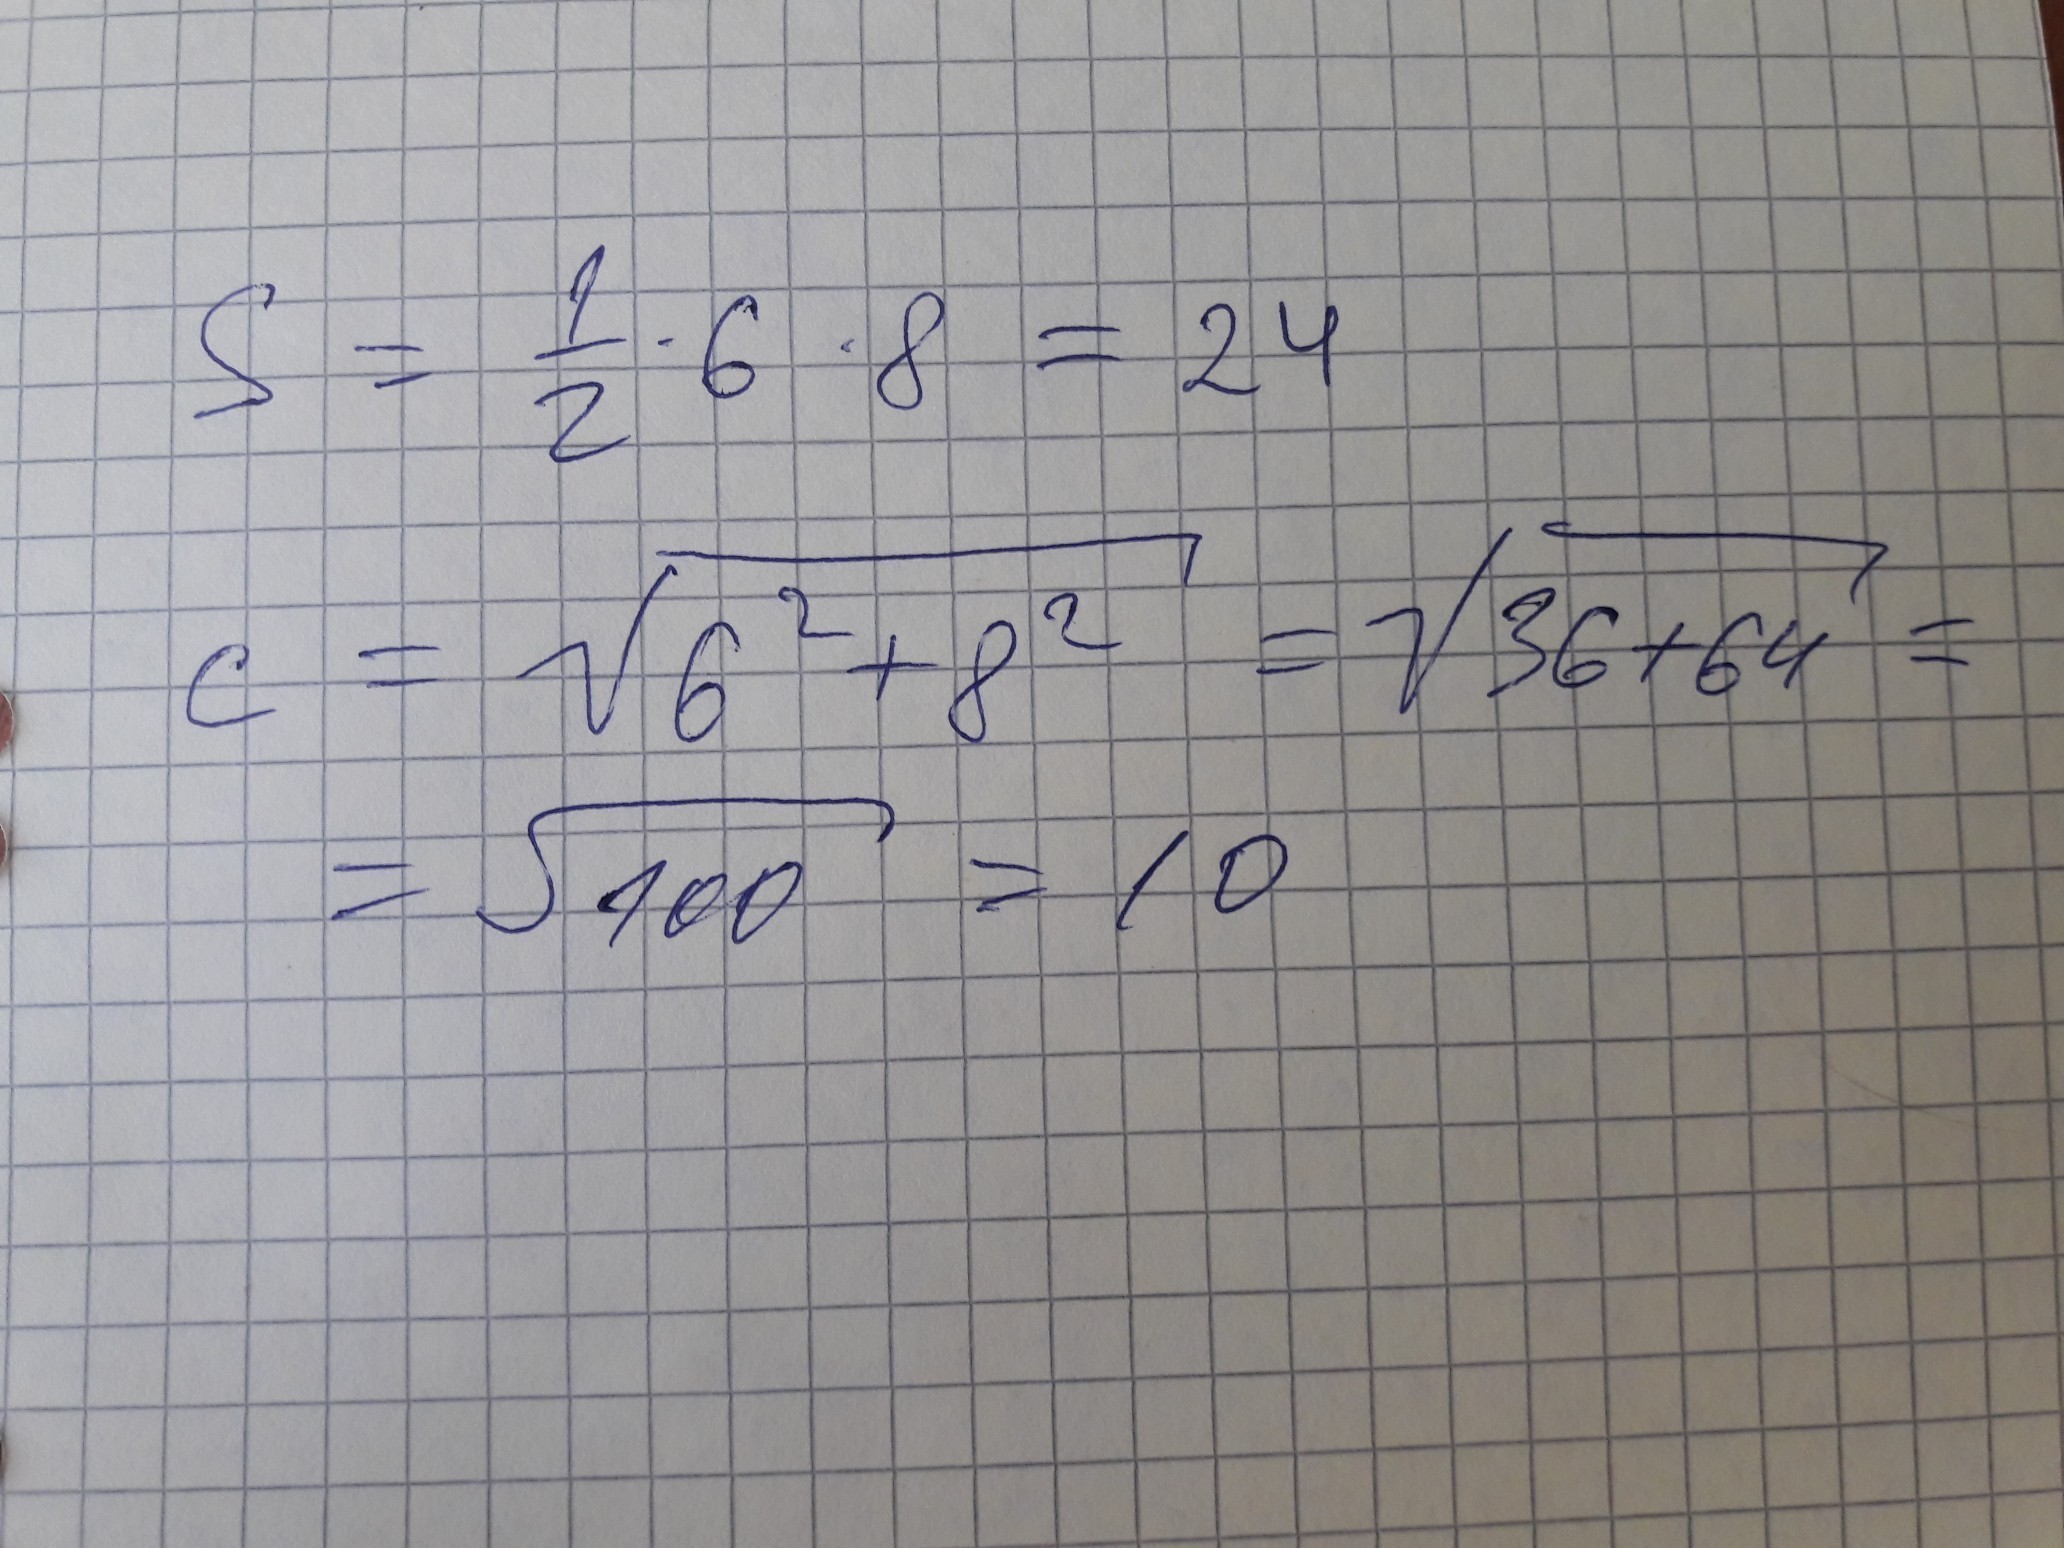 S = 1/2 · 6 · 8 = 24
c = √(6² + 8²) = √(36+64) =
= √100 = 10